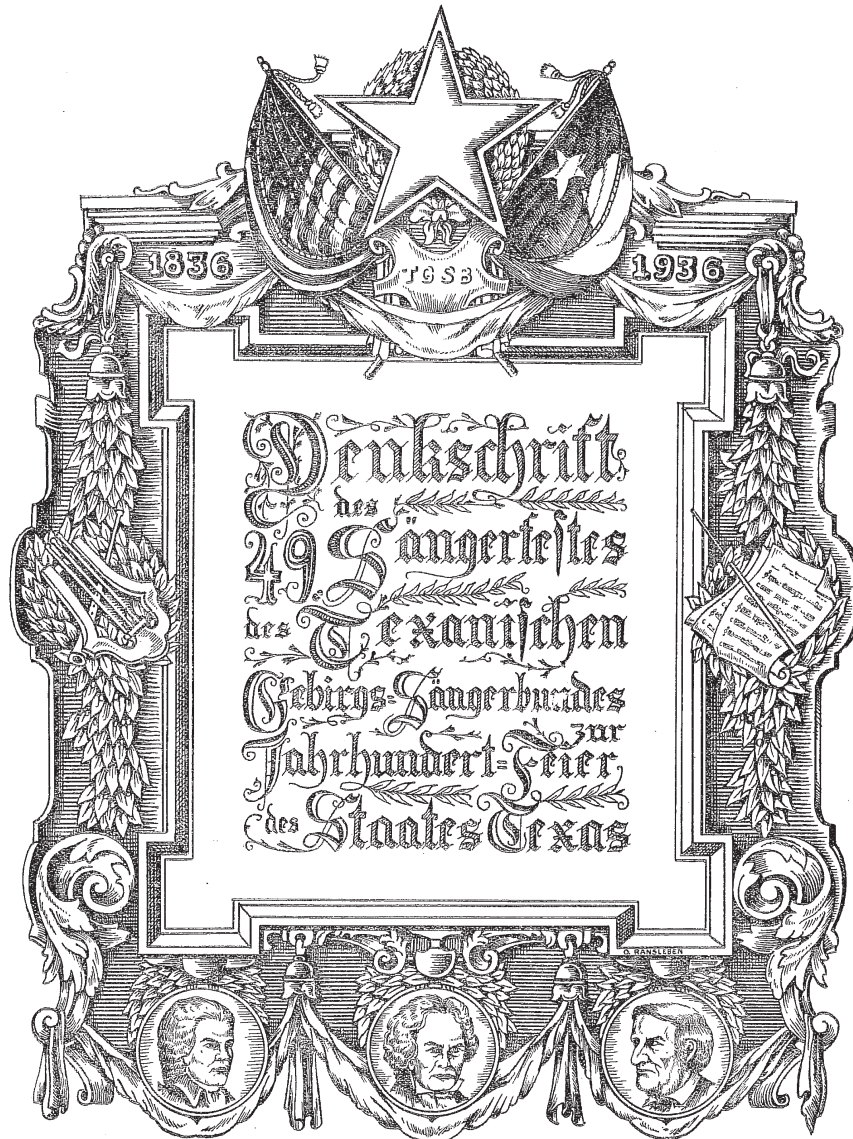 1836
1936
TGSB
Denkschrift
des
49 Sängerfestes
des Texanischen
Gebirgs=Sängerbundes
zur
Jahrhundert=Feier
des Staates Texas
O. RANSLEBEN